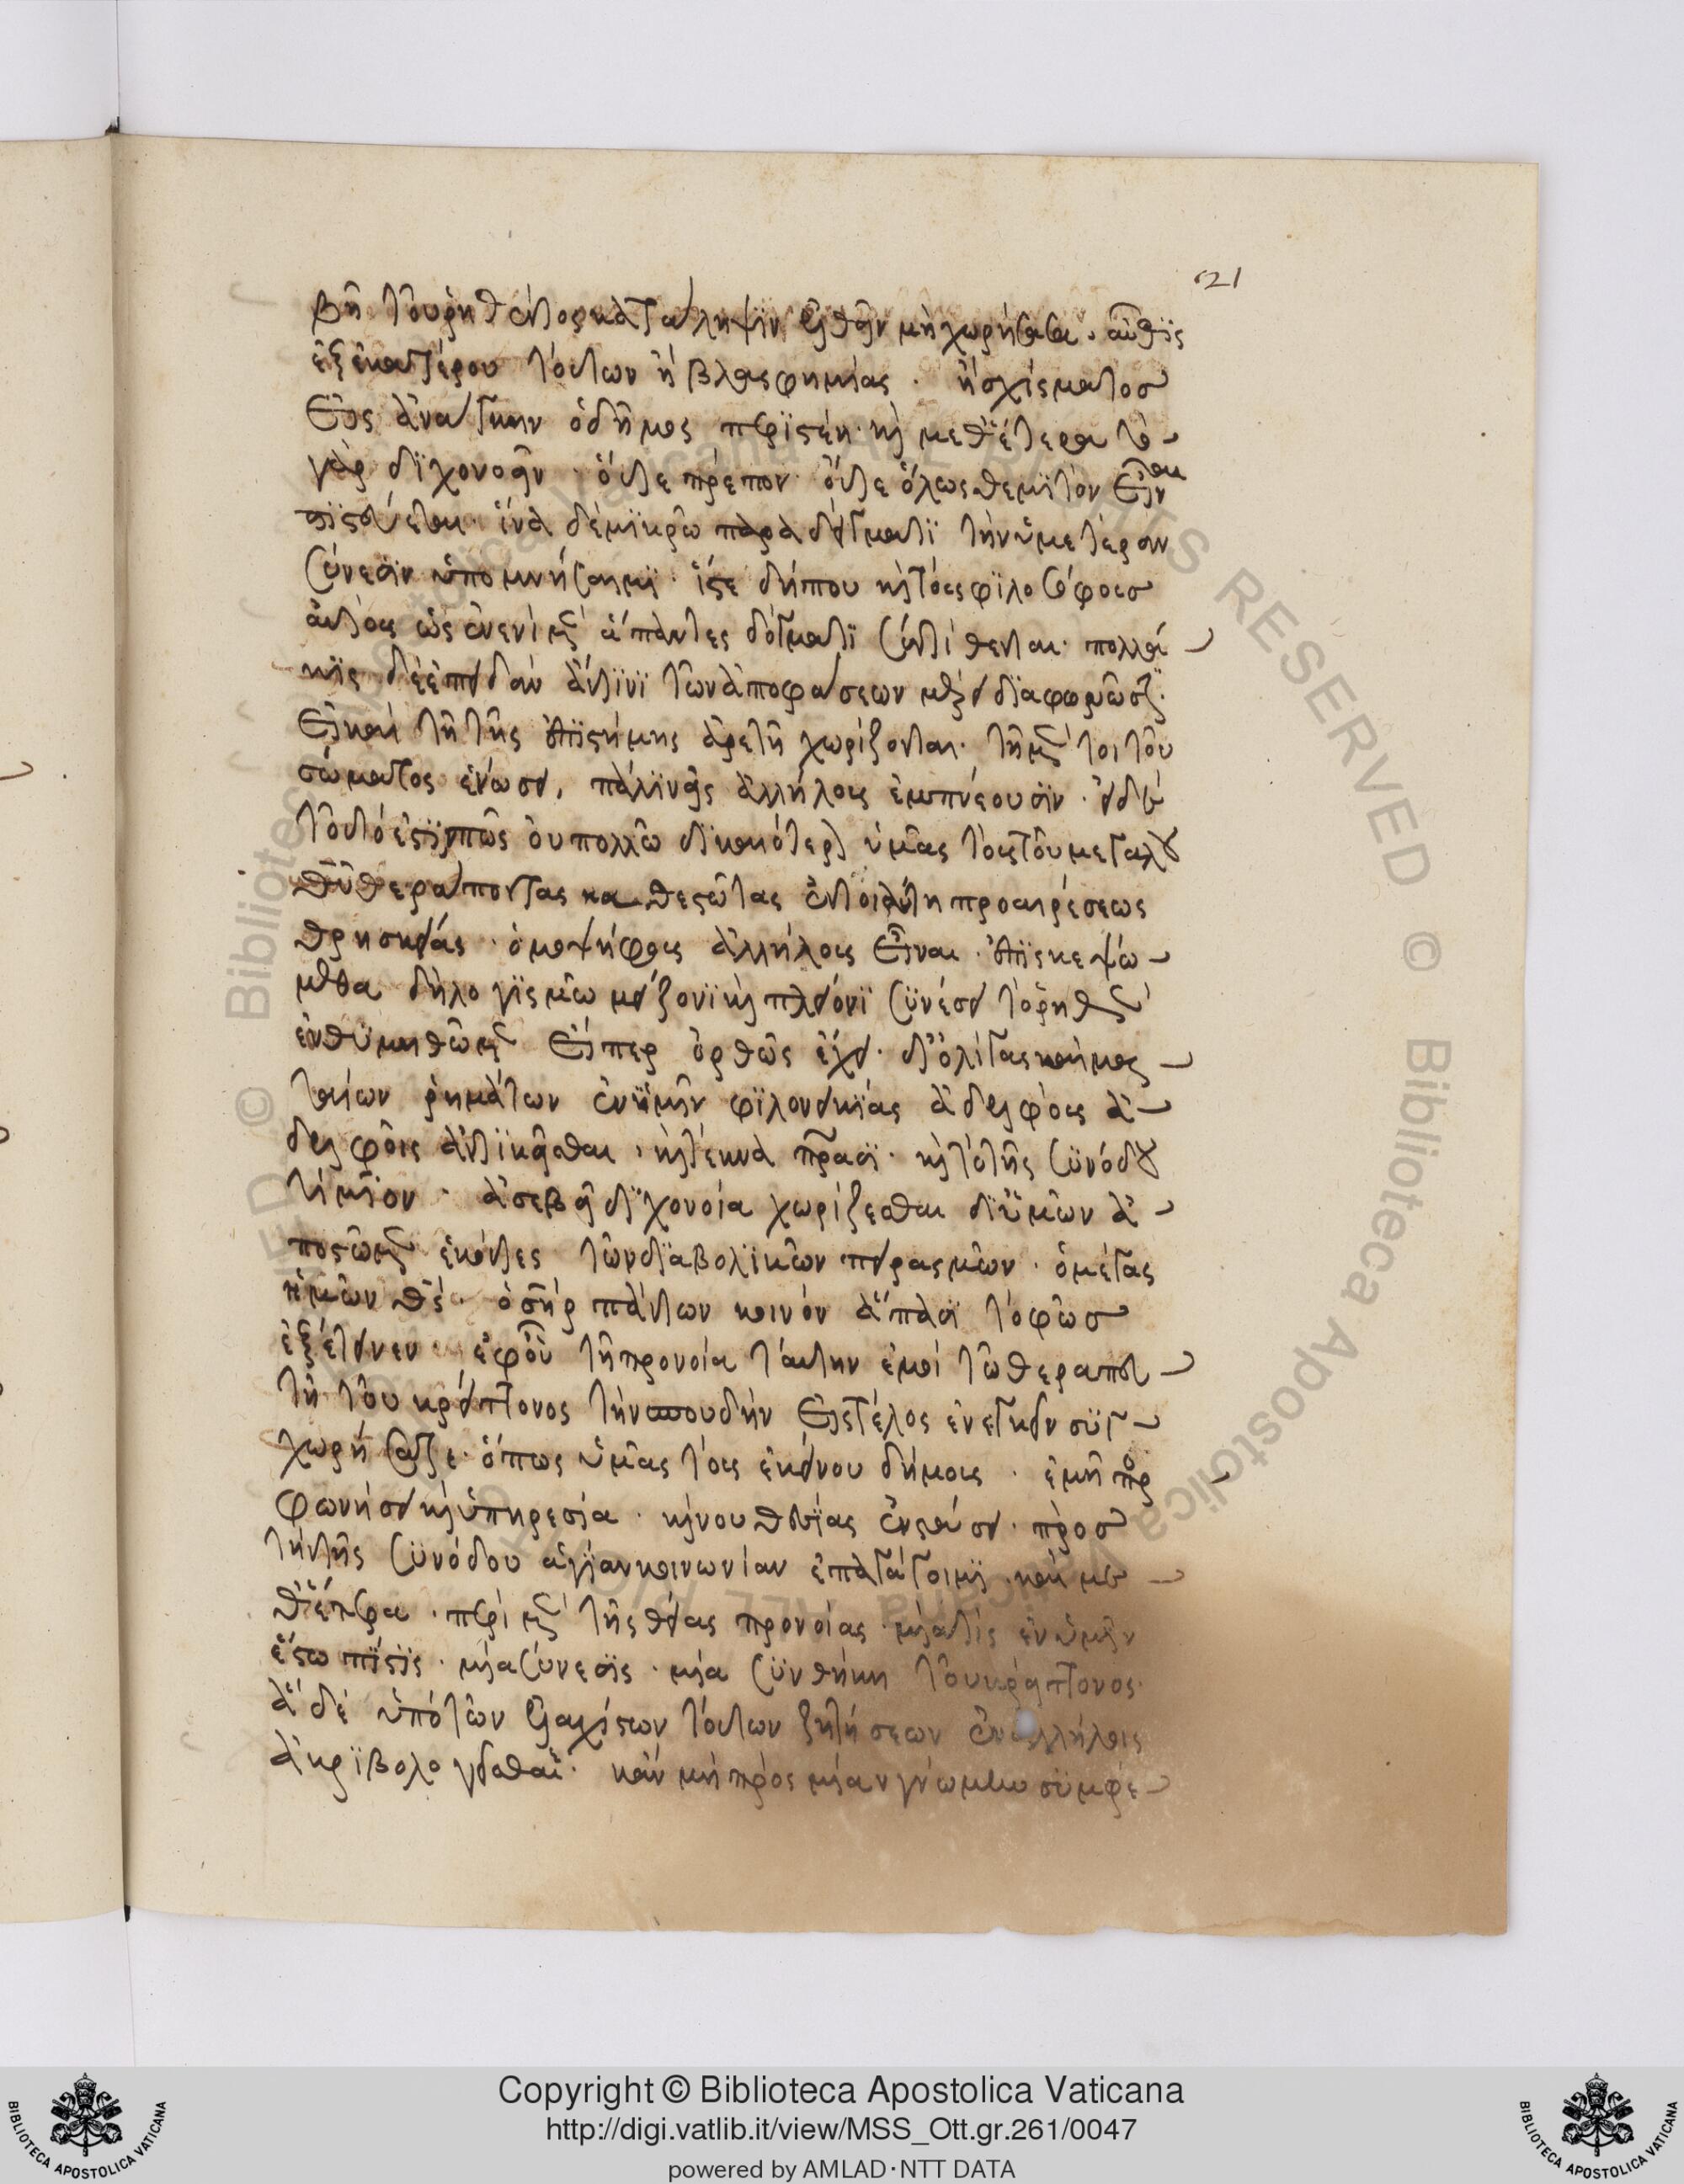 21
βῆ τοῦ ῥηθέντος κατάληψιν ἐλθεῖν μὴ χωρήσασι. αὖθις
ἐξ ἑκατέρου τούτων ἢ βλασφημίας. ἢ σχίσματος
εἰς ἀνάγκην ὁ δῆμος περιστέη. καὶ μεθ' ἕτερα
γὰρ διχονοεῖν. οὔτε πρέπον. οὔτε ὅλως θεμιτὸν εἶναι
πιστεύεται. ἵνα δὲ μικρῷ παραδείγματι τὴν ὑμετέραν
σύνεσιν ὑπομνήσαιμι. ἴστε δήπου καὶ τοὺς φιλοσόφους
αὐτοὺς ὡς ἑνὶ μὲν ἅπαντες δόγματι συντίθενται. πολλά
κις δὲ ἐπειδὰν ἔν τινι τῶν ἀποφάσεων μέρει διαφωνῶσιν.
εἰ καὶ τῇ τῆς ἐπιστήμης ἀρετῇ χωρίζονται. τῇ μέντοι τοῦ
σώματος ἑνώσει, πάλιν εἰς ἀλλήλους ἐμπνέουσιν. εἰ δὲ
τοῦτό ἐστι πῶς οὐ πολλῷ δικαιότερον ὑμᾶς τοὺς τοῦ μεγάλου
θεοῦ θεράποντας καθεστῶτας ἐν τοιαύτῃ προαιρέσεως
θρησκείας. ὁμοψήφους ἀλλήλοις εἶναι. ἐπισκεψώ
μεθα δὴ λογισμῷ μείζονι καὶ πλείονι συνέσει τὸ ῥηθὲν
ἐνθυμηθῶμεν εἴπερ ὀρθῶς ἔχει. δι' ὀλίγας καὶ μα
ταίων ῥημάτων ἐν ὑμῖν φιλονεικίας ἀδελφοὺς ἀ
δελφοῖς ἀντικεῖσθαι. καὶ τέκνα πράσι. καὶ τὸ τῆς συνόδου
τίμιον. ἀσεβεῖ διχονοία χωρίζεσθαι δι' ὑμῶν ἀ
ποστῶμεν ἑκόντες τῶν διαβολικῶν πειρασμῶν. ὁ μέγας
ἡμῶν θεός. ὁ σωτὴρ πάντων κοινὸν ἅπασι τὸ φῶς
ἐξέτεινεν ἐφ' οὗ τῇ προνοία ταύτην ἐμοὶ τῷ θεραπευ
τῇ τοῦ κρείττονος τὴν σπουδὴν εἰς τέλος ἐνεγκεῖν συγ
χωρήσατε. ὅπως ὑμᾶς τοὺς ἐκείνου δήμους. ἐμῇ προσ
φωνήσει καὶ ὑπηρεσία. καὶ νουθεσίας ἐνστάσει. πρὸς
τὴν τῆς συνόδου ἁγίαν κοινωνίαν ἐπαγάγοιμι. καὶ με
θ' ἕτερα. περὶ μὲν τῆς θείας προνοίας μία τίς ἐν ὑμῖν
ἔστω πίστις. μία σύνεσις. μία συνθήκη τοῦ κρείττονος.
ἃ δὲ ὑπὸ τῶν ἐλαχίστων τούτων ζητήσεων ἐν ἀλλήλοις
ἀκριβολογεῖσθαι. κἂν μὴ πρὸς μίαν γνώμην συμφέ
Copyright © Biblioteca Apostolica Vaticana
http://digi.vatlib.it/view/MSS_Ott.gr.261/0047
powered by AMLAD·NTT DATA
BIBLIOTECA APOSTOLICA VATICANA
BIBLIOTECA APOSTOLICA VATICANA